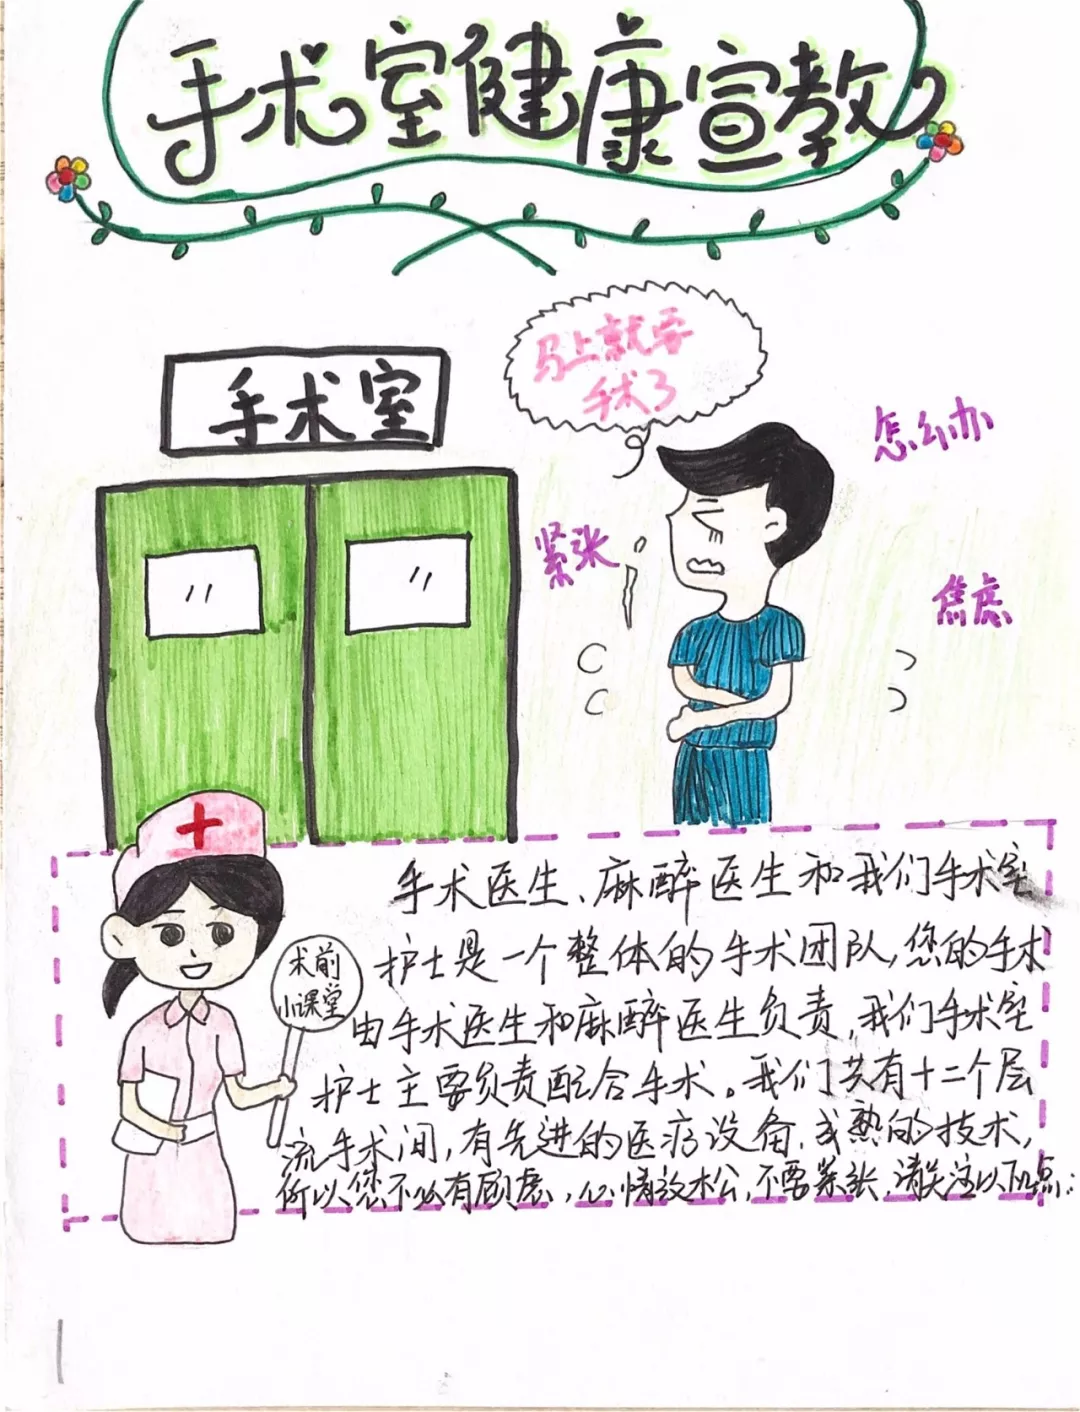 手术室健康宣教
马上就要
手术了
手术室
怎么办
紧张
焦虑
术前
小课堂
手术医生、麻醉医生和我们手术室
护士是一个整体的手术团队,您的手术
由手术医生和麻醉医生负责,我们手术室
护士主要负责配合手术。我们共有十二个层
流手术间,有先进的医疗设备,成熟的技术,
所以您不必有顾虑,心情放松,不要紧张,请关注以下几点: